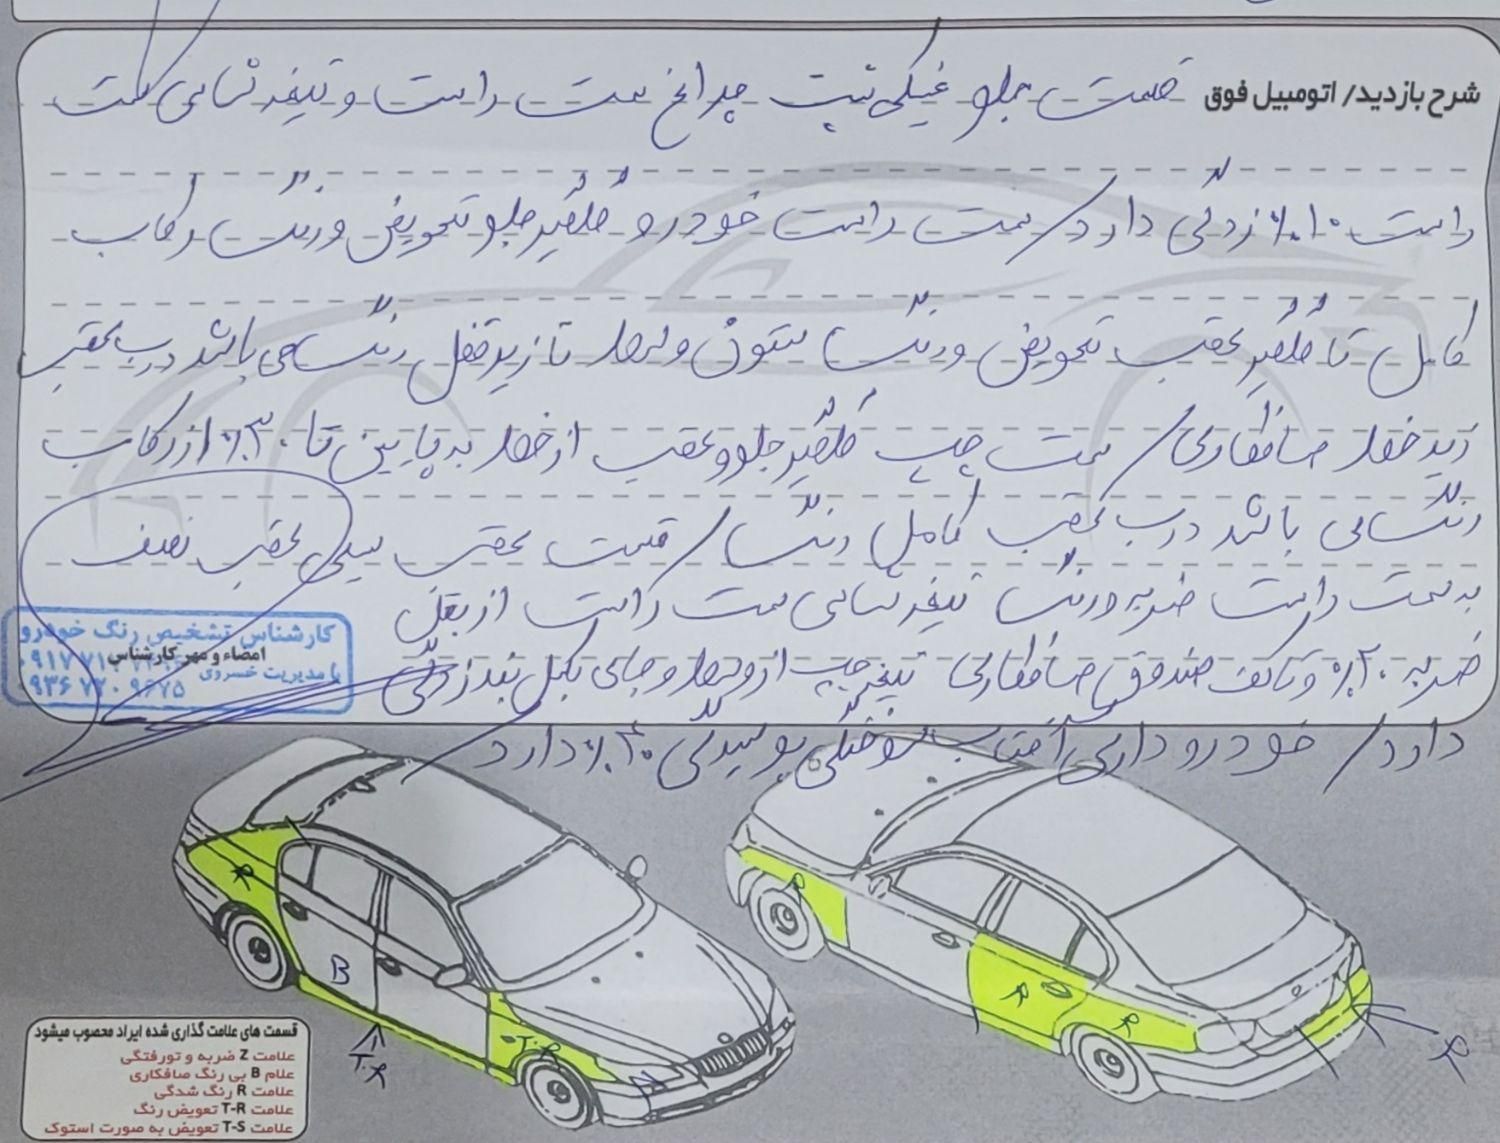 شرح بازدید/ اتومبیل فوق قسمت جلو فیکس نیست چراغ سمت راست و تیغه شاسی سمت
راست ۱۰٪ زدگی دارد / سمت راست خودرو گلگیر جلو تعویض و رنگ رکاب
کامل تا گلگیر عقب تعویض و رنگ ستون وسط تا زیر قفل رنگ می باشد درب عقب
زیر خط صافکاری / سمت چپ گلگیر جلو و عقب از خط به پایین تا ۳۰٪ از رکاب
رنگ می باشد درب عقب کامل رنگ / قسمت عقب سینی عقب نصف
به سمت راست ضربه و رنگ تیغه شاسی سمت راست از بغل
ضربه ۲۰٪ و تا کف صندوق صافکاری تیغه چپ از وسط و جای بکسل بند زدگی
دارد / خودرو دارای آفتاب سوختگی پوسیدگی ۴۰٪ دارد
کارشناس تشخیص رنگ خودرو
امضاء و مهر کارشناس
با مدیریت خسروی
۰۹۳۶ ۷۲۰ ۹۶۷۵
R
B
T.R
T.R
Z
R
R
R
R
قسمت های علامت گذاری شده ایراد محصوب میشود
علامت Z ضربه و تورفتگی
علام B بی رنگ صافکاری
علامت R رنگ شدگی
علامت T-R تعویض رنگ
علامت T-S تعویض به صورت استوک